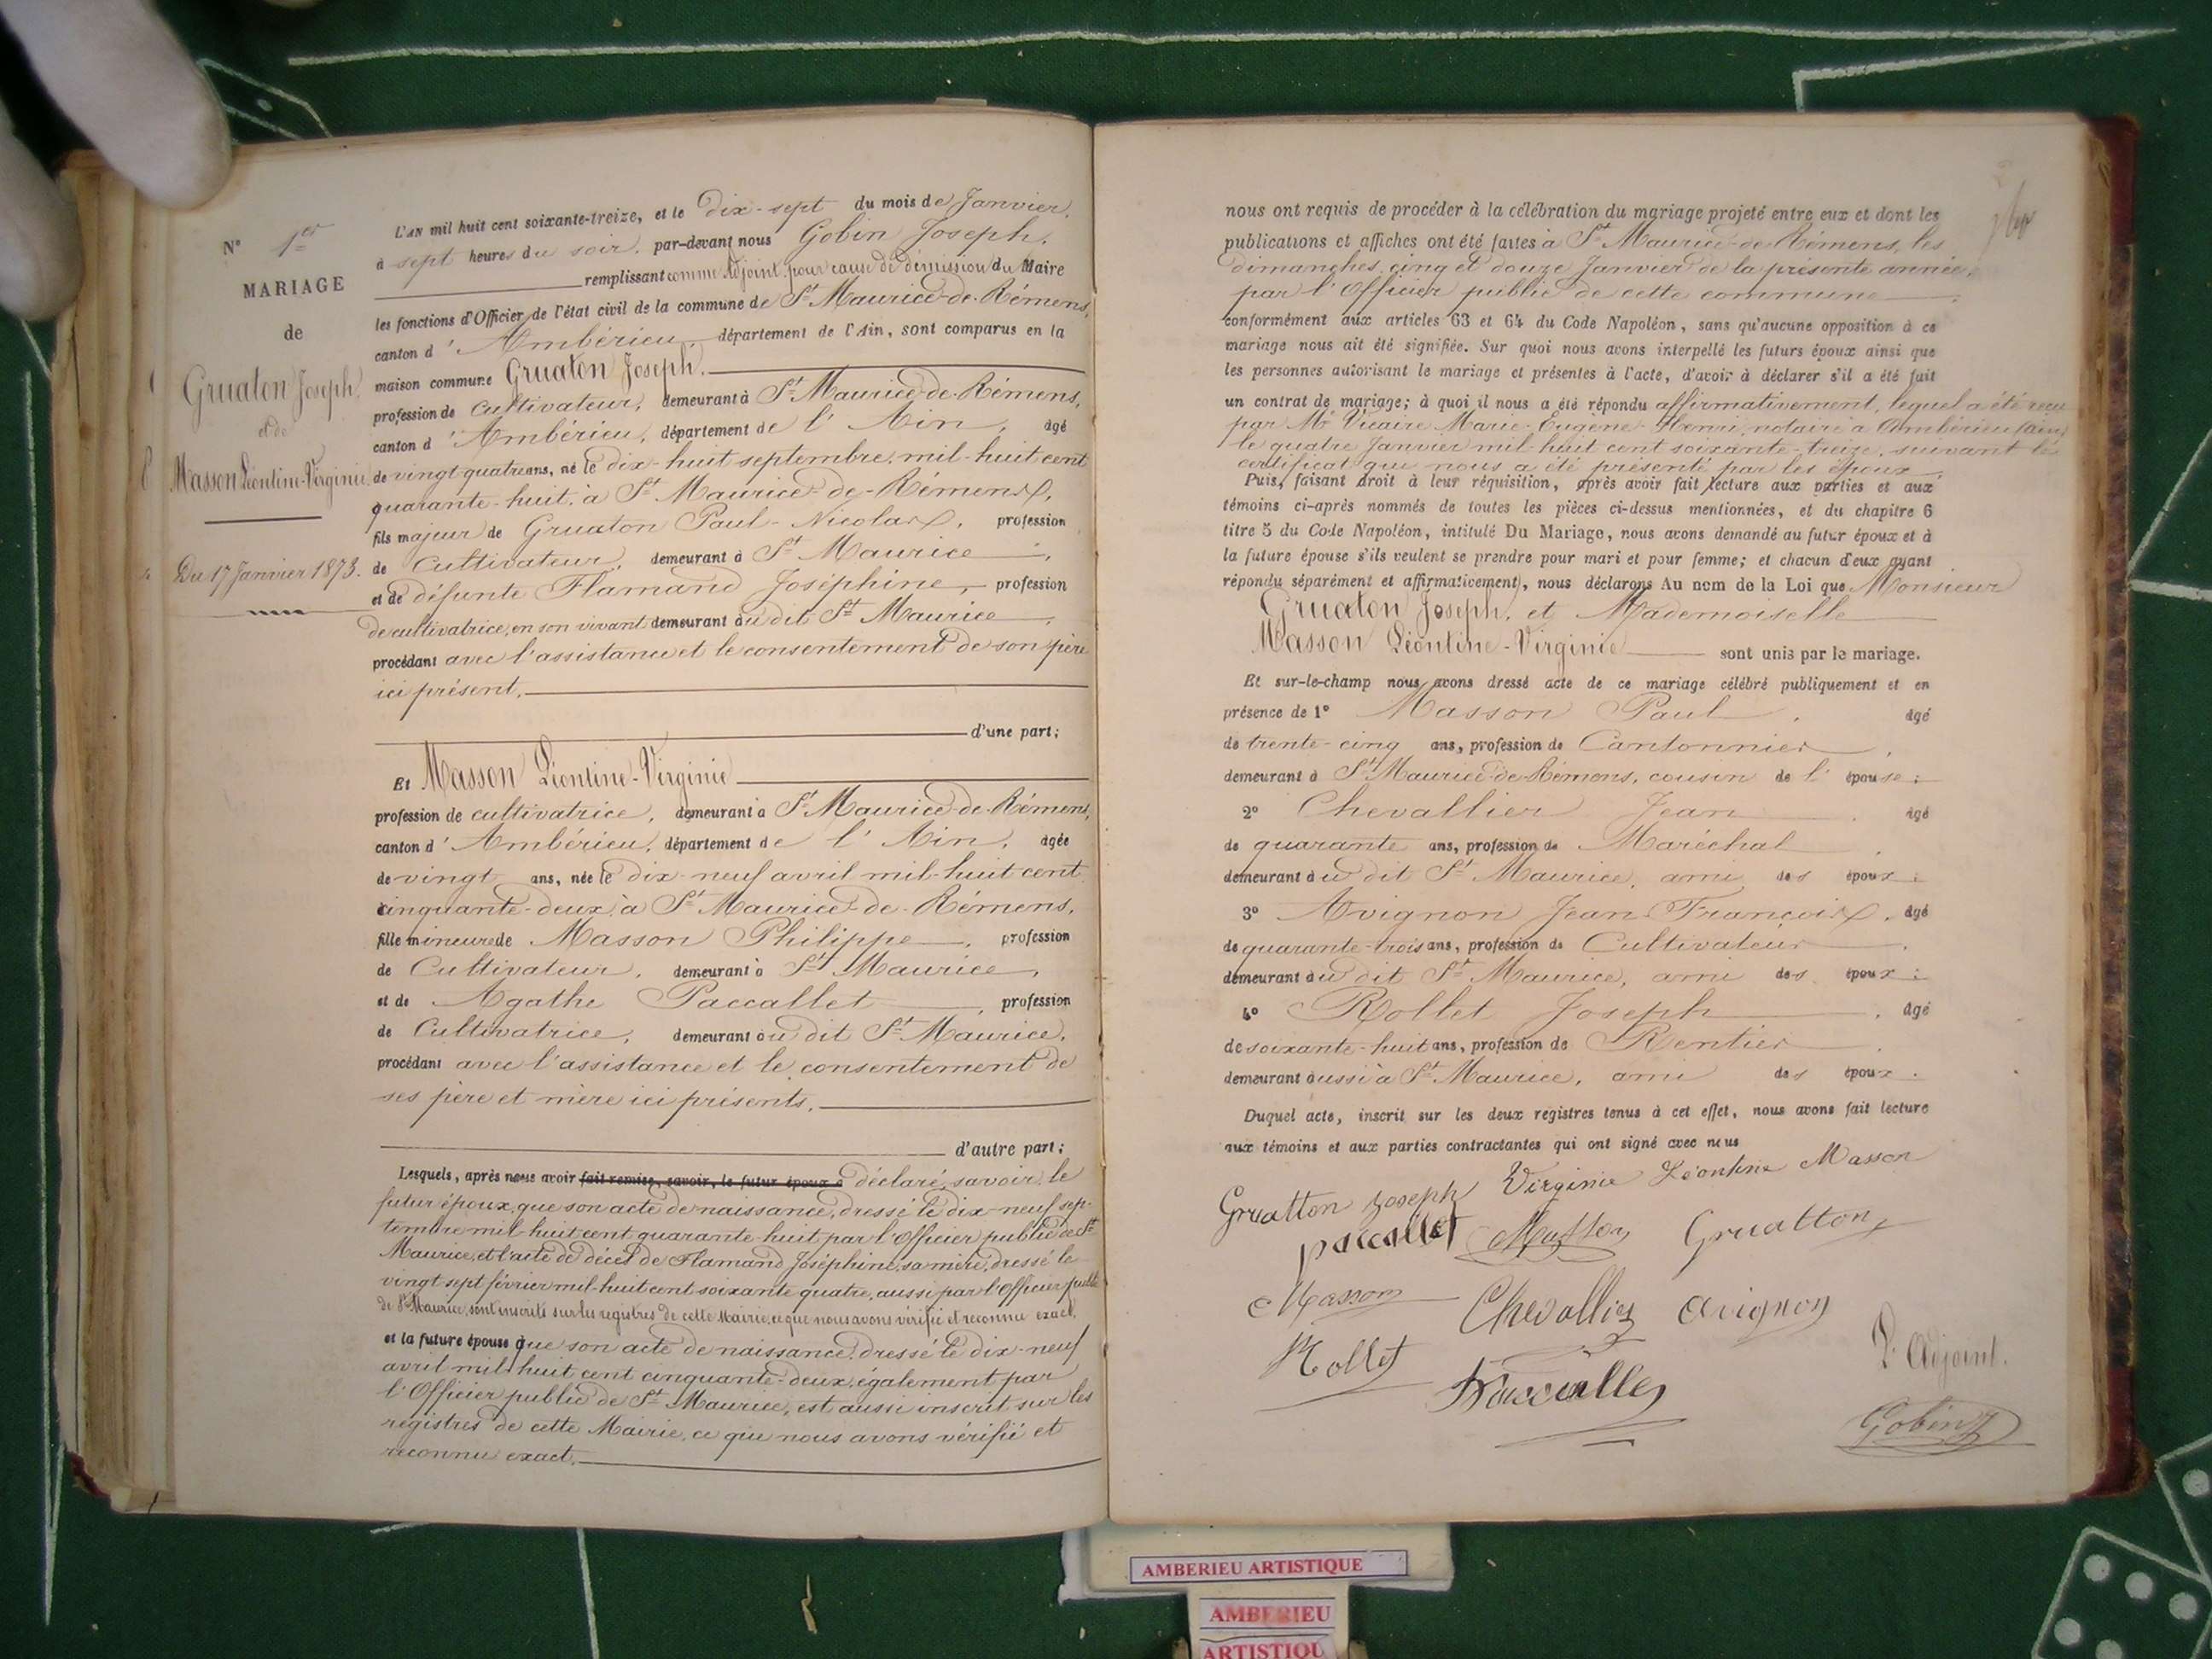 N° 1er
MARIAGE
de
Gruaton Joseph,
et de
Masson Léontine-Virginie
Du 17 Janvier 1873.
L'AN mil huit cent soixante-treize, et le dix-sept du mois de Janvier,
à sept heures du soir, par-devant nous Gobin Joseph,
remplissant comme Adjoint, pour cause de démission du Maire
les fonctions d'Officier de l'état civil de la commune de St Maurice-de-Rémens,
canton d'Ambérieu, département de l'Ain, sont comparus en la
maison commune Gruaton Joseph,
profession de cultivateur, demeurant à St Maurice-de-Rémens,
canton d'Ambérieu, département de l'Ain, âgé
de vingt quatre ans, né le dix-huit septembre, mil-huit cent
quarante-huit, à St Maurice-de-Rémens,
fils majeur de Gruaton Paul-Nicolas, profession
de Cultivateur, demeurant à St Maurice,
et de défunte Flamand Joséphine, profession
de cultivatrice, en son vivant demeurant au dit St Maurice,
procédant avec l'assistance et le consentement de son père
ici présent,
d'une part;
Et Masson Léontine-Virginie
profession de cultivatrice, demeurant à St Maurice-de-Rémens,
canton d'Ambérieu, département de l'Ain, âgée
de vingt ans, née le dix-neuf avril mil-huit cent
cinquante-deux, à St Maurice-de-Rémens,
fille mineure de Masson Philippe, profession
de Cultivateur, demeurant à St Maurice,
et de Agathe Paccallet, profession
de Cultivatrice, demeurant au dit St Maurice,
procédant avec l'assistance et le consentement de
ses père et mère ici présents,
d'autre part;
Lesquels, après nous avoir fait remise, savoir, le futur époux d déclaré, savoir, le
futur époux, que son acte de naissance, dressé le dix-neuf sep-
tembre mil-huit cent quarante-huit par l'Officier public de St
Maurice, et l'acte de décès de Flamand Joséphine, sa mère, dressé le
vingt sept février mil-huit cent soixante quatre, aussi par l'Officier public
de St Maurice, sont inscrits sur les registres de cette Mairie, ce que nous avons vérifié et reconnu exact,
et la future épouse que son acte de naissance, dressé le dix-neuf
avril mil huit cent cinquante-deux, également par
l'Officier public de St Maurice, est aussi inscrit sur les
registres de cette Mairie, ce que nous avons vérifié et
reconnu exact.
nous ont requis de procéder à la célébration du mariage projeté entre eux et dont les
publications et affiches ont été faites à St Maurice-de-Rémens, les
dimanches, cinq et douze Janvier de la présente année,
par l'Officier public de cette commune
conformément aux articles 63 et 64 du Code Napoléon, sans qu'aucune opposition à ce
mariage nous ait été signifiée. Sur quoi nous avons interpellé les futurs époux ainsi que
les personnes autorisant le mariage et présentes à l'acte, d'avoir à déclarer s'il a été fait
un contrat de mariage; à quoi il nous a été répondu affirmativement, lequel a été reçu
par Me Vicaire Marie-Eugène-Henri, notaire à Ambérieu (Ain)
le quatre Janvier mil-huit cent soixante-treize, suivant le
certificat que nous a été présenté par les époux
Puis, faisant droit à leur réquisition, après avoir fait lecture aux parties et aux
témoins ci-après nommés de toutes les pièces ci-dessus mentionnées, et du chapitre 6
titre 5 du Code Napoléon, intitulé Du Mariage, nous avons demandé au futur époux et à
la future épouse s'ils veulent se prendre pour mari et pour femme; et chacun d'eux ayant
répondu séparément et affirmativement, nous déclarons Au nom de la Loi que Monsieur
Gruaton Joseph, et Mademoiselle
Masson Léontine-Virginie sont unis par le mariage.
Et sur-le-champ nous avons dressé acte de ce mariage célébré publiquement et en
présence de 1° Masson Paul, âgé
de trente-cinq ans, profession de Cantonnier,
demeurant à St Maurice-de-Rémens, cousin de l'épouse;
2° Chevallier Jean, âgé
de quarante ans, profession de Maréchal,
demeurant au dit St Maurice, ami des époux;
3° Avignon Jean François, âgé
de quarante-trois ans, profession de Cultivateur,
demeurant au dit St Maurice, ami des époux;
4° Rollet Joseph, âgé
de soixante-huit ans, profession de Rentier,
demeurant aussi à St Maurice, ami des époux.
Duquel acte, inscrit sur les deux registres tenus à cet effet, nous avons fait lecture
aux témoins et aux parties contractantes qui ont signé avec nous
Gruatton Joseph Virginie Léontine Masson
paccallet Masson Gruatton
Masson Chevallier Avignon
Rollet
L'Adjoint.
Gobin J
AMBERIEU ARTISTIQUE
AMBERIEU
ARTISTIQU